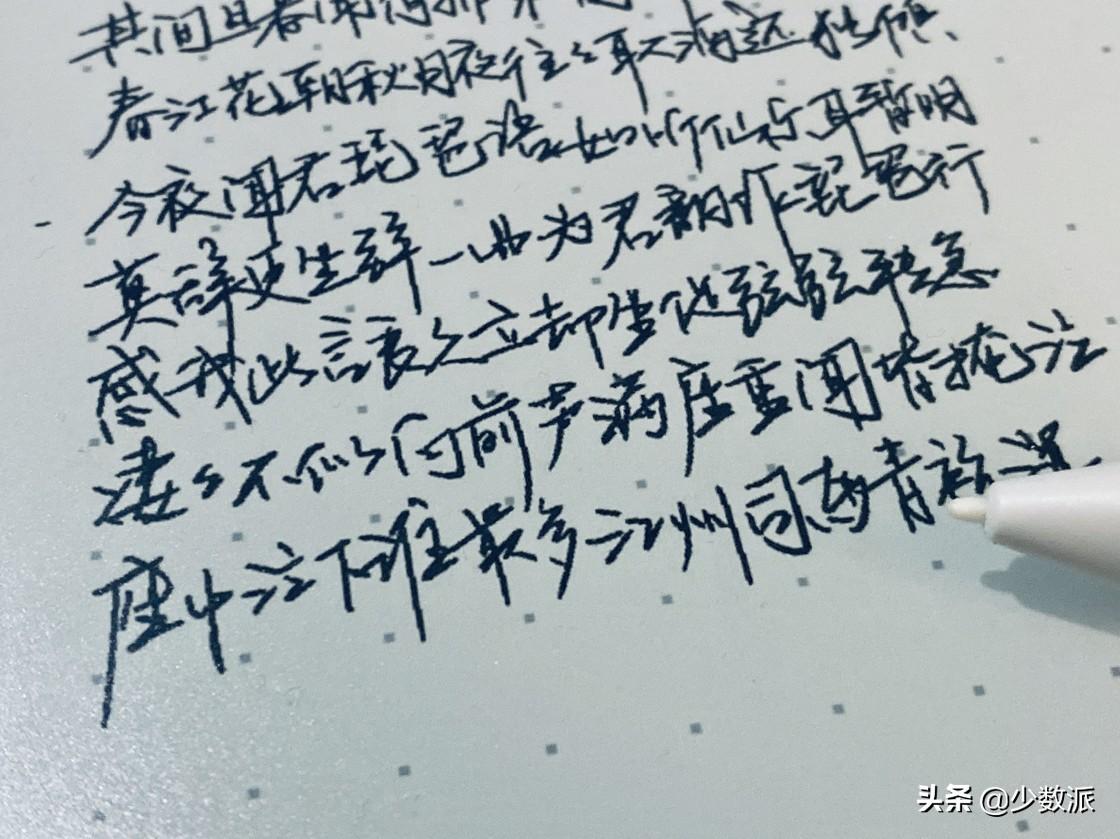 其间旦暮闻何
春江花朝秋月夜往々取酒还独倾、
今夜闻君琵琶语如听仙乐耳暂明
莫辞更坐弹一曲为君翻作琵琶行
感我此言良久立却坐促弦弦转急
凄々不似向前声满座重闻皆掩泣
座中泣下谁最多江州司马青衫湿
头条 @少数派